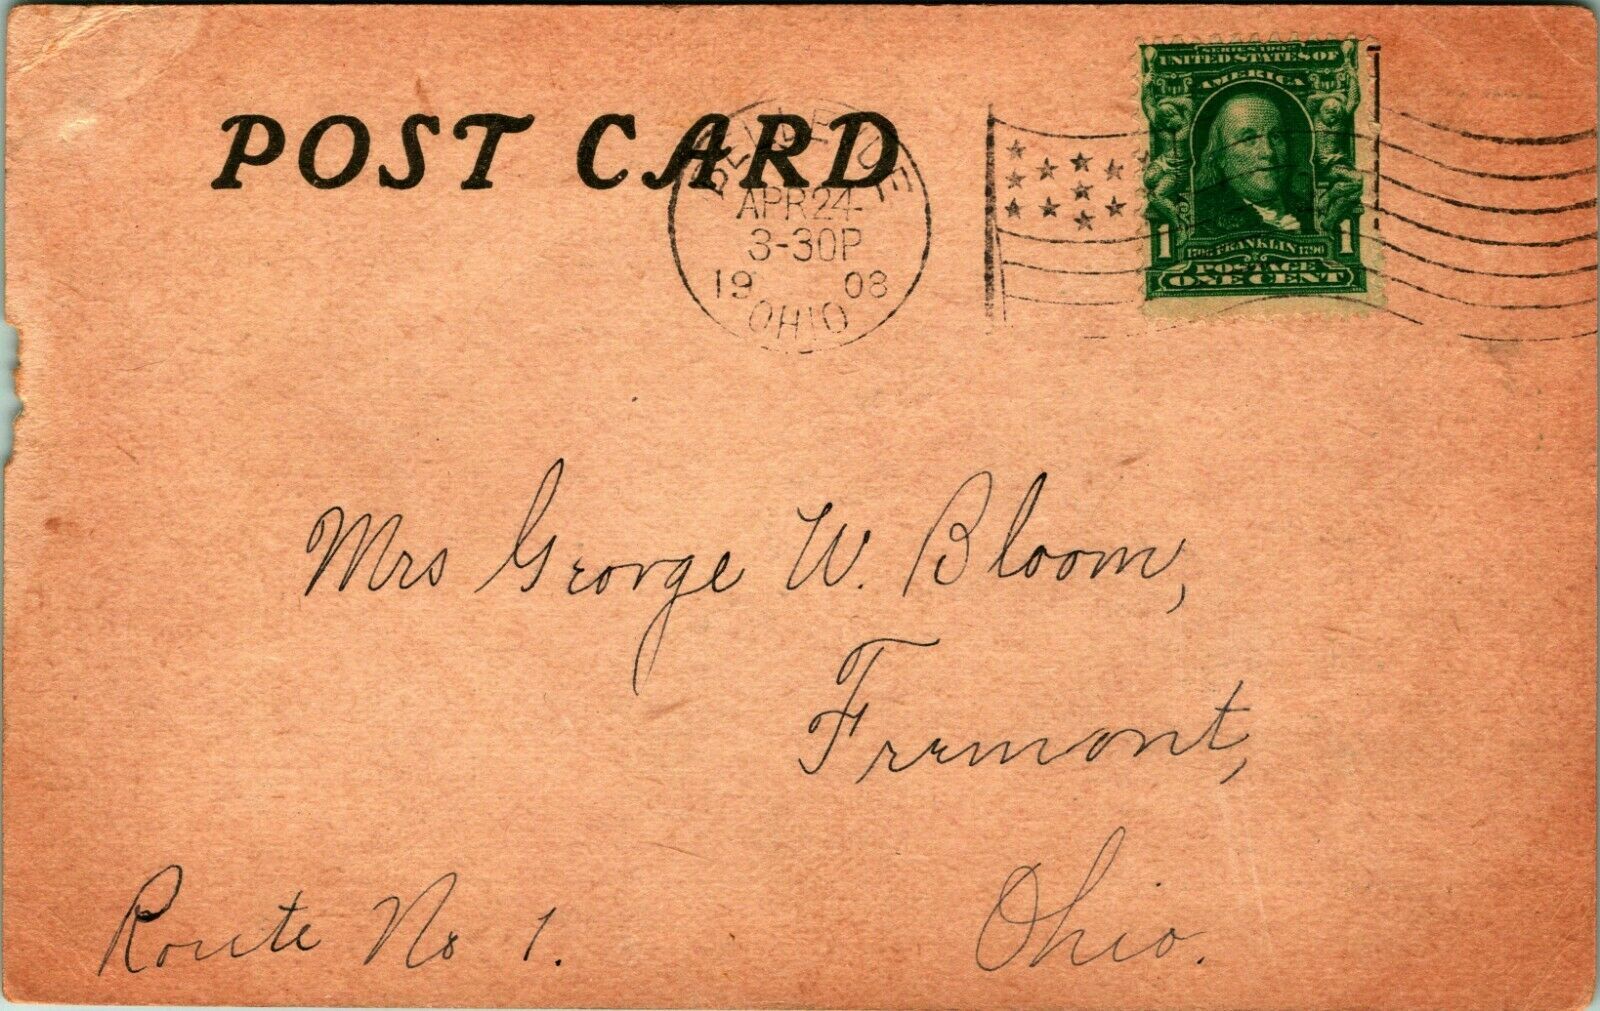 POST CARD
BELLEVUE
APR 24
3-30P
19 08
OHIO
SERIES 1902
UNITED STATES OF
AMERICA
1 1
1706 FRANKLIN 1790
POSTAGE
ONE CENT
Mrs George W. Bloom,
Fremont,
Ohio.
Route No 1.